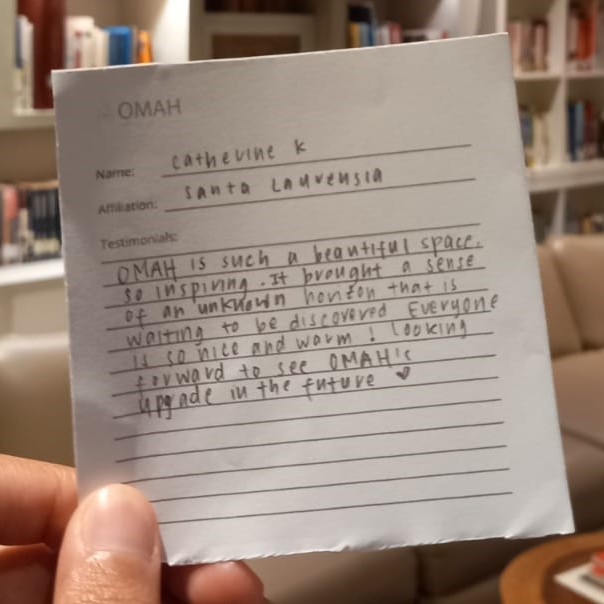 OMAH
Name: catherine k
Affiliation: Santa Laurensia
Testimonials:
OMAH is such a beautiful space.
so inspiring. It brought a sense
of an unknown horizon that is
waiting to be discovered Everyone
is so nice and warm! looking
forward to see OMAH's
upgrade in the future ♥